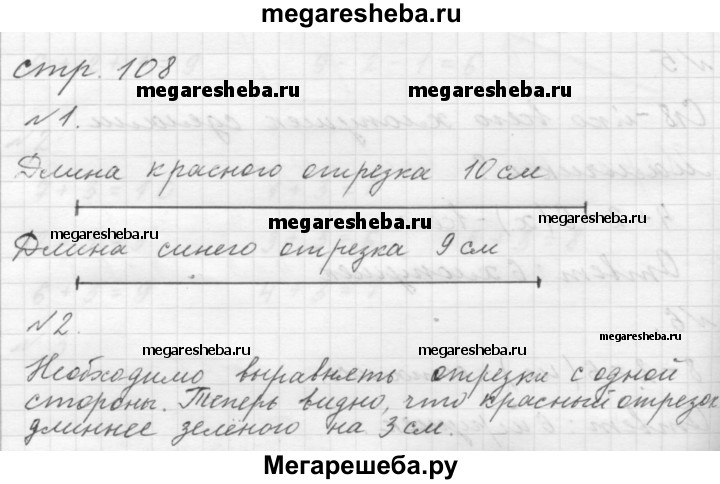 megaresheba.ru
стр. 108
megaresheba.ru megaresheba.ru
№1.
Длина красного отрезка 10 см
megaresheba.ru megaresheba.ru megaresheba.ru
Длина синего отрезка 9 см
№2.
megaresheba.ru megaresheba.ru megaresheba.ru
Необходимо выравнять отрезки с одной
стороны. Теперь видно, что красный отрезок
длиннее зелёного на 3 см.
Мегарешеба.ру